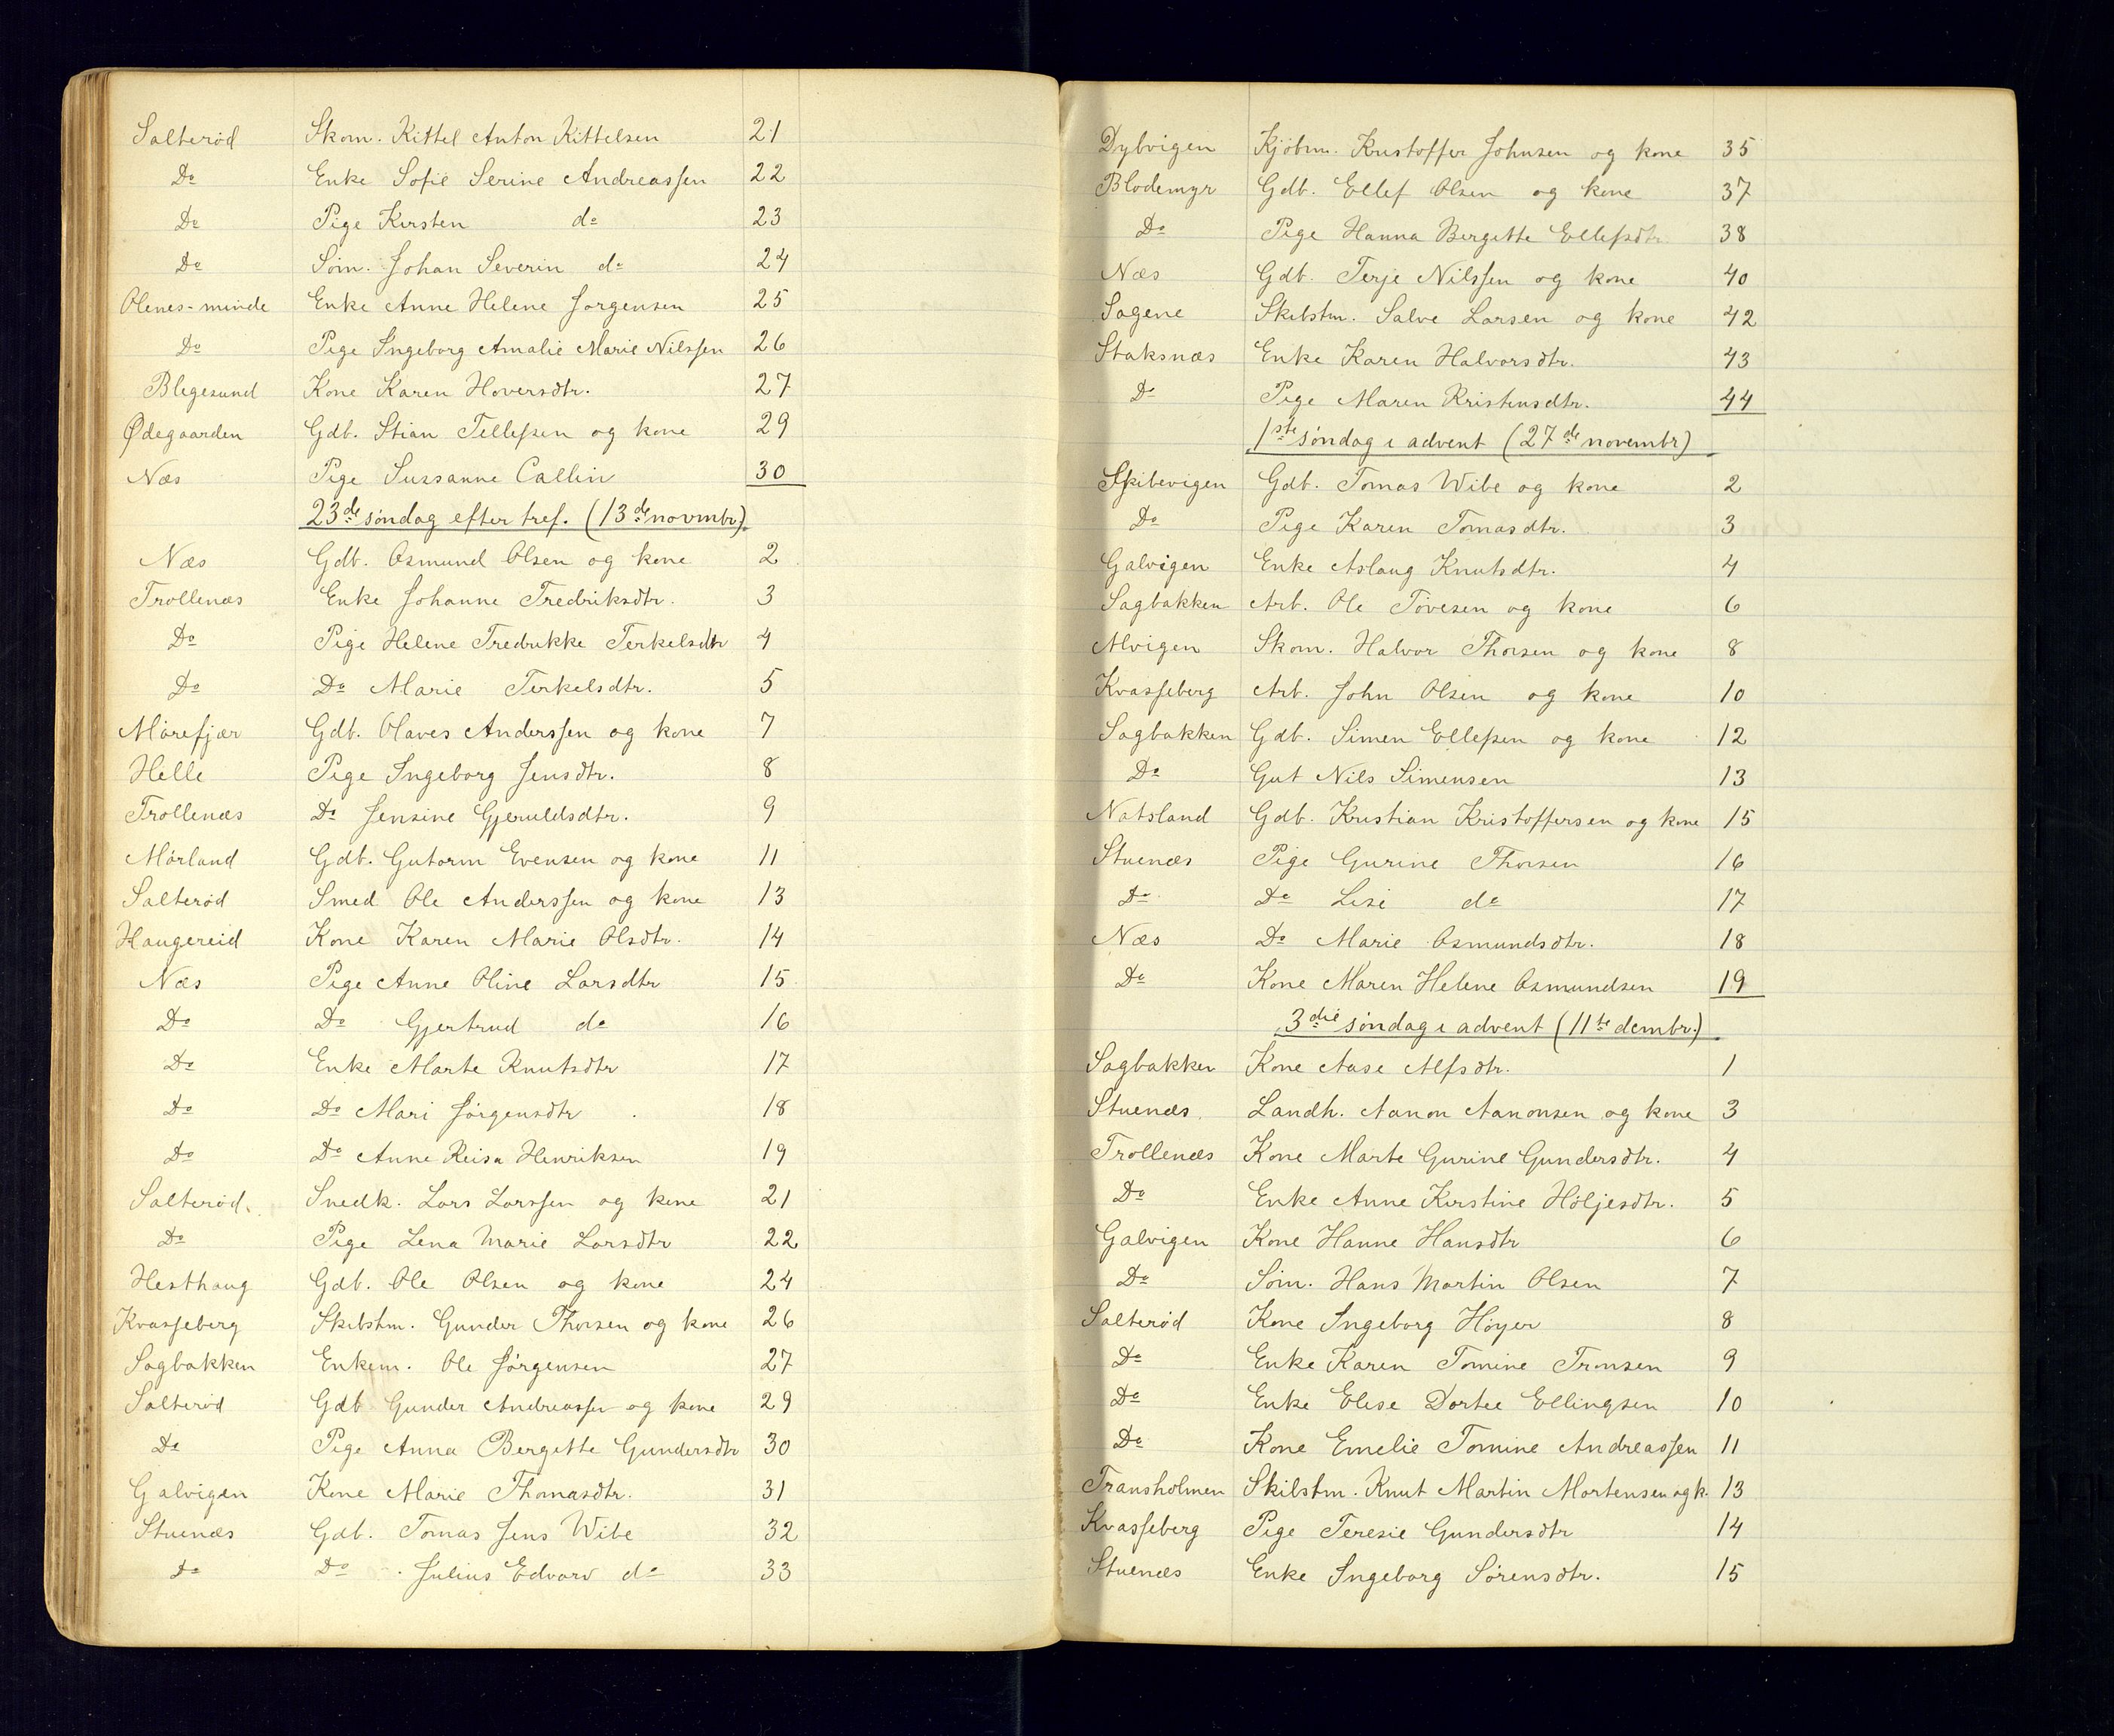 Salterød Skom. Kittel Anton Kittelsen 21
Do Enke Sofie Serine Andreassen 22
Do Pige Kirsten do 23
Do Søm. Johan Severin do 24
Olenes-minde Enke Anne Helene Jørgensen 25
Do Pige Ingeborg Amalie Marie Nilssen 26
Blegesund Kone Karen Hoversdtr. 27
Ødegaarden Gdb. Stian Tellefsen og kone 29
Næs Pige Sussanne Callin 30
23de søndag efter tref. (13de novmbr).
Næs Gdb. Osmund Olsen og kone 2
Trollenæs Enke Johanne Fredriksdtr. 3
Do Pige Helene Fredrikke Terkelsdtr 4
Do Do Marie Terkelsdtr. 5
Mørefjær Gdb. Olaves Anderssen og kone 7
Helle Pige Ingeborg Jensdtr. 8
Trollenæs Do Jensine Gjeruldsdtr. 9
Mørland Gdb. Gutorm Evensen og kone 11
Salterød Smed Ole Anderssen og kone 13
Haugereid Kone Karen Marie Olsdtr. 14
Næs Pige Anne Oline Larsdtr 15
Do Do Gjertrud do 16
Do Enke Marte Knutsdtr 17
Do Do Mari Jørgensdtr 18
Do Do Anne Reisa Henriksen 19
Salterød. Snedk. Lars Larssen og kone 21
Do Pige Lena Marie Larsdtr 22
Hesthaug Gdb. Ole Olsen og kone 24
Kvasseberg Skibstm. Gunder Thorsen og kone 26
Sagbakken Enkem. Ole Jørgensen 27
Salterød Gdb Gunder Andreassen og kone 29
Do Pige Anna Bergitte Gundersdtr 30
Galvigen Kone Marie Thomasdtr. 31
Stuenæs Gdb. Tomas Jens Wibe 32
Do Do Julius Edvard do 33
Dybvigen Kjöbm. Kristoffer Johnsen og kone 35
Blodemyr Gdb. Ellef Olsen og kone 37
Do Pige Hanna Bergitte Ellefsdtr 38
Næs Gdb. Terje Nilssen og kone 40
Sagene Skibstm. Salve Larsen og kone 42
Staksnæs Enke Karen Halvorsdtr. 43
Do Pige Maren Kristensdtr. 44
1ste søndag i advent (27de novembr)
Skibevigen Gdb. Tomas Wibe og kone 2
Do Pige Karen Tomasdtr. 3
Galvigen Enke Aslaug Knutsdtr. 4
Sagbakken Arb. Ole Tövesen og kone 6
Alvigen Skom. Halvor Thorsen og kone 8
Kvasseberg Arb. John Olsen og kone 10
Sagbakken Gdb. Simen Ellefsen og kone 12
Do Gut Nils Simensen 13
Natsland Gdb. Kristian Kristoffersen og kone 15
Stuenæs Pige Gurine Thorsen 16
Do Do Lisi do 17
Næs Do Marie Osmundsdtr. 18
Do Kone Maren Helene Osmundsen 19
3die søndag i advent (11te dembr.)
Sagbakken Kone Aase Alfsdtr. 1
Stuenæs. Landh. Aanon Aanonsen og kone 3
Trollenæs Kone Marte Gurine Gundersdtr. 4
Do Enke Anne Kirstine Höljesdtr. 5
Galvigen Kone Hanne Hansdtr 6
Do Søm. Hans Martin Olsen 7
Salterød Kone Ingeborg Höyer 8
Do Enke Karen Tomine Tronsen 9
Do Enke Elise Dortee Ellingsen 10
Do Kone Emelie Tomine Andreassen 11
Fransholmen Skibstm. Knut Martin Mortensen og k. 13
Kvasseberg Pige Teresie Gundersdtr 14
Stuenæs Enke Ingeborg Sørensdtr. 15